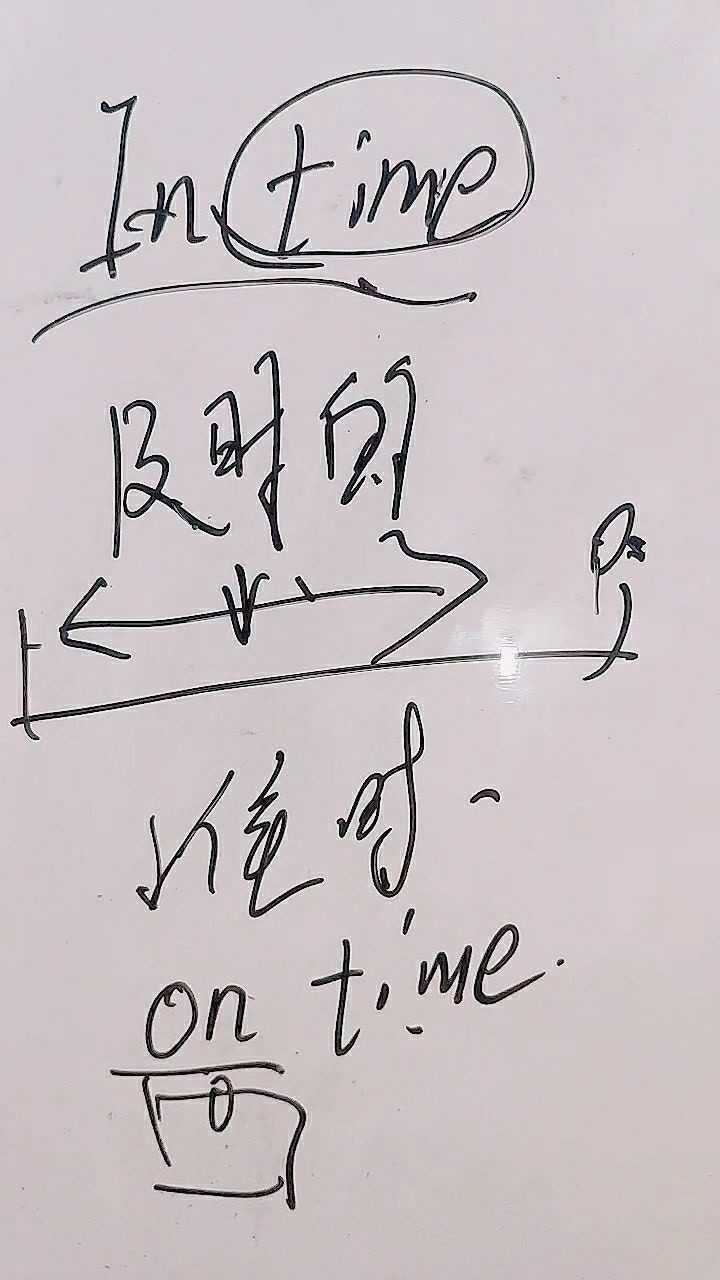 In time
及时的
准时
on time.